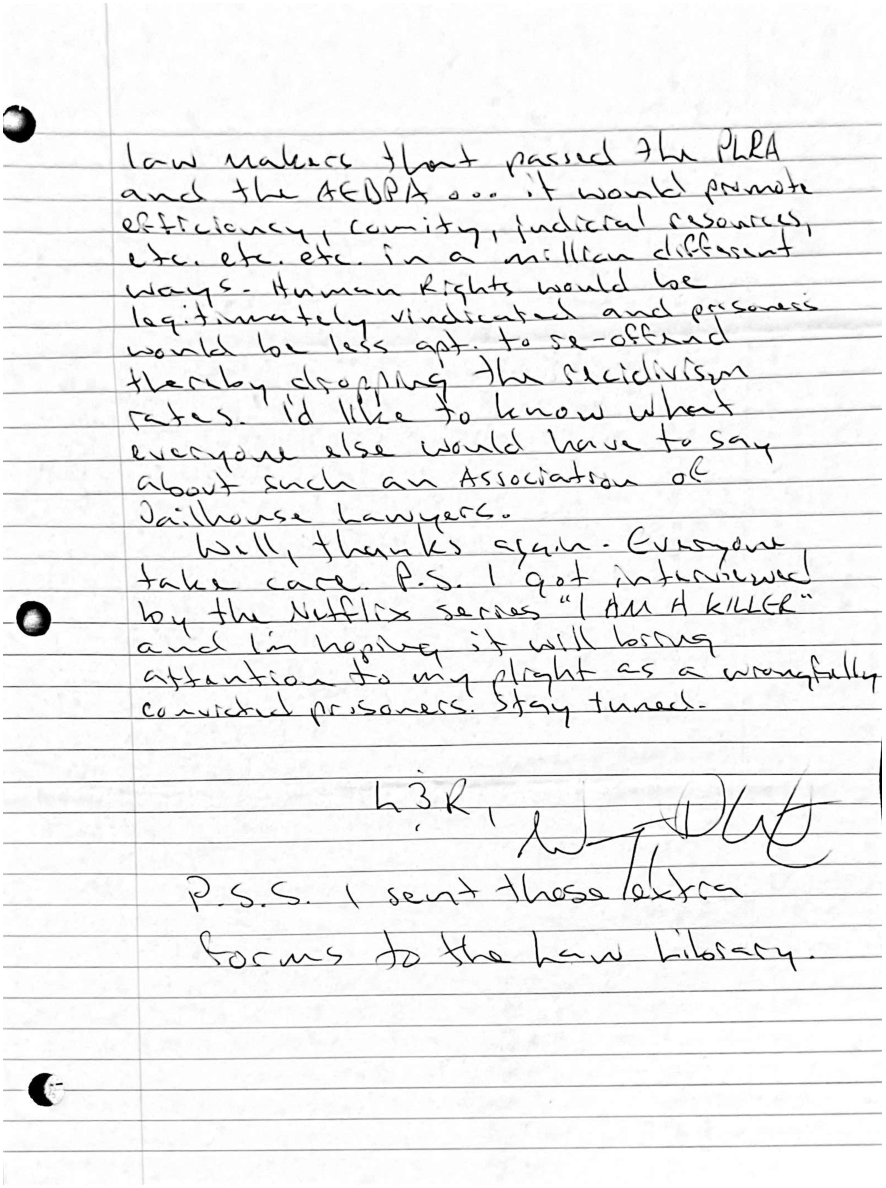 law makers that passed the PLRA
and the AEDPA... it would promote
efficiency, comity, judicial resources,
etc. etc. etc. in a million different
ways. Human Rights would be
legitimately vindicated and prisoners
would be less apt to re-offend
thereby dropping the recidivism
rates. i'd like to know what
everyone else would have to say
about such an Association of
Jailhouse Lawyers.
Well, thanks again. Everyone
take care P.S. I got interviewed
by the Netflix series "I AM A KILLER"
and I'm hoping it will bring
attention to my plight as a wrongfully
convicted prisoners. Stay tuned.
P.S.S. I sent those extra
forms to the Law Library.